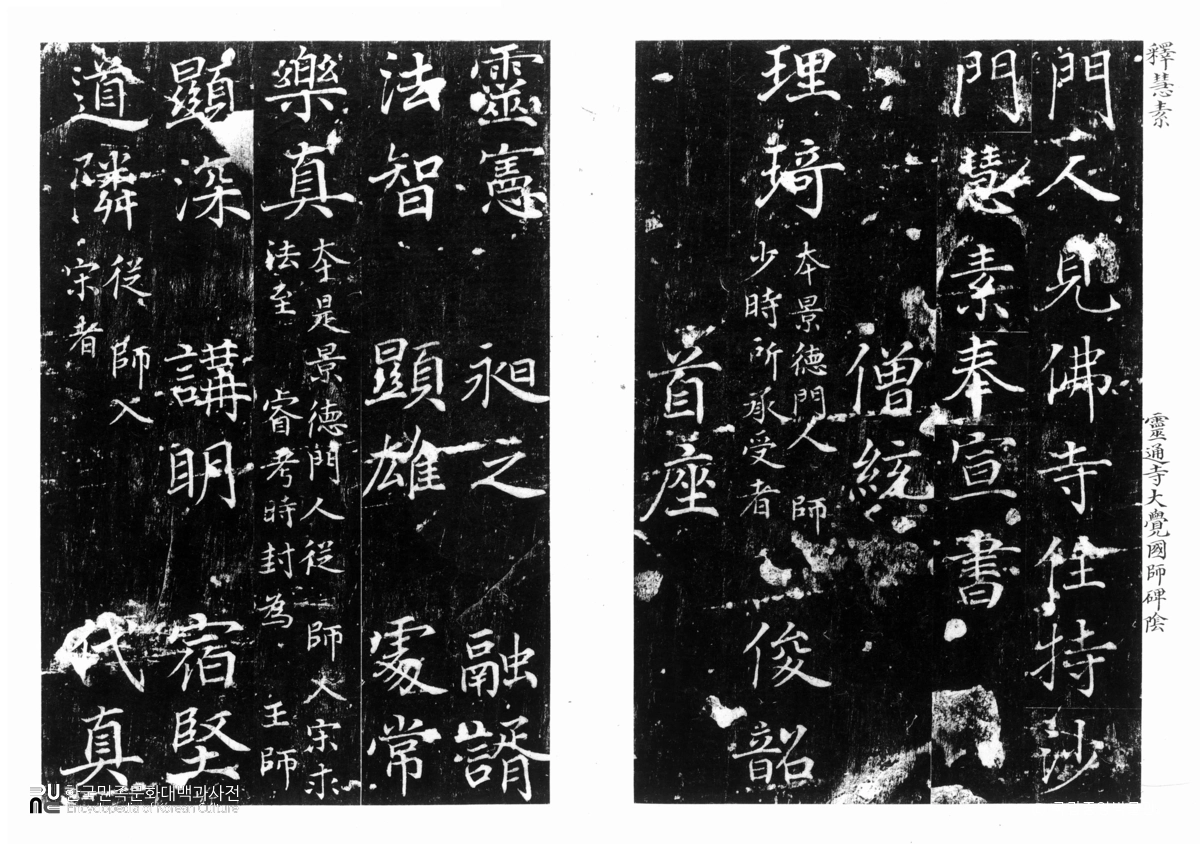 釋慧素
靈通寺大覺國師碑陰
門人見佛寺住持沙
門慧素奉宣書
僧統
理琦 本景德門人 師
少時所承受者 俊韶
首座
靈憲 昶之 融諝
法智 顯雄 處常
樂真 本是景德門人從 師入宋求
法至 睿考時封為 王師
顯深 講明 宿堅
道隣 從 師入
宋者 代真
한국민족문화대백과사전
Encyclopedia of Korean Culture